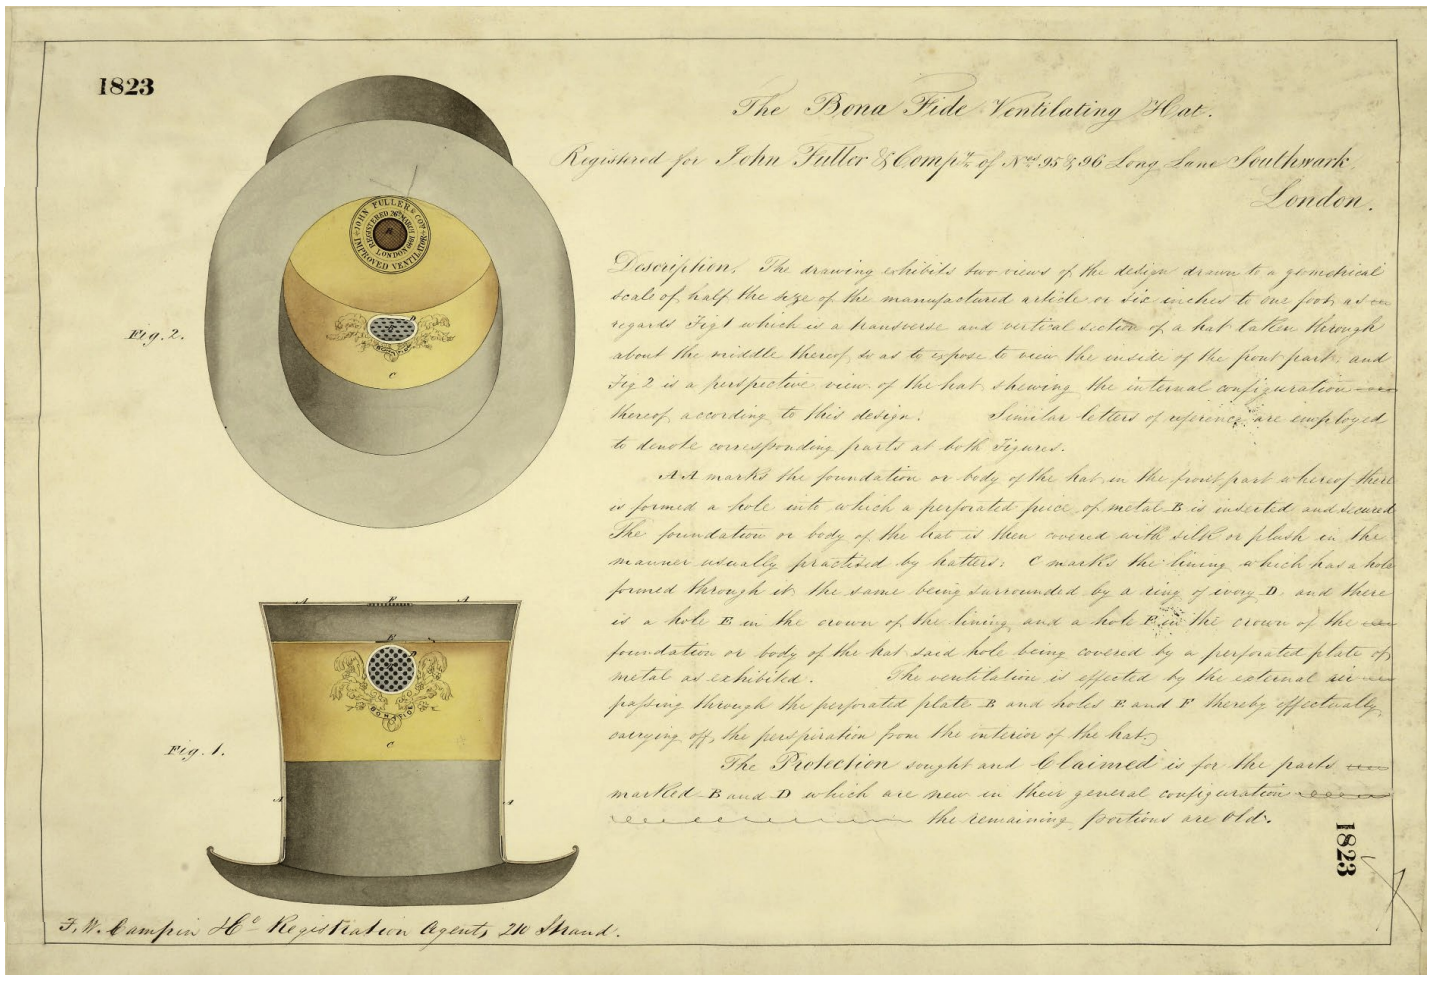 1823
The Bona Fide Ventilating Hat.
Registered for John Fuller & Compy. of Nos. 95 & 96 Long Lane Southwark
London.
Description. The drawing exhibits two views of the design drawn to a geometrical
scale of half the size of the manufactured article or six inches to one foot, as
regards Fig 1 which is a transverse and vertical section of a hat taken through
about the middle thereof, so as to expose to view the inside of the front part and
Fig 2 is a perspective view of the hat shewing the internal configuration
thereof according to this design. Similar letters of reference are employed
to denote corresponding parts at both Figures.
A A marks the foundation or body of the hat in the front part whereof there
is formed a hole into which a perforated piece of metal B is inserted and secured
The foundation or body of the hat is then covered with silk or plush in the
manner usually practised by hatters. C marks the lining which has a hole
formed through it the same being surrounded by a ring of ivory D and there
is a hole E in the crown of the lining and a hole F in the crown of the
foundation or body of the hat said hole being covered by a perforated plate of
metal as exhibited. The ventilation is effected by the external air
passing through the perforated plate B and holes E and F thereby effectually
carrying off the perspiration from the interior of the hat
The Protection sought and Claimed is for the parts
marked B and D which are new in their general configuration
the remaining portions are Old.
JOHN FULLER & COY
IMPROVED VENTILATOR
REGISTERED 26 MARCH
LONDON
D
C
Fig. 2.
A F A
E
D
B
BONA FIDE
C
Fig. 1.
A A
F. W. Campin & Co Registration Agents, 210 Strand.
1823